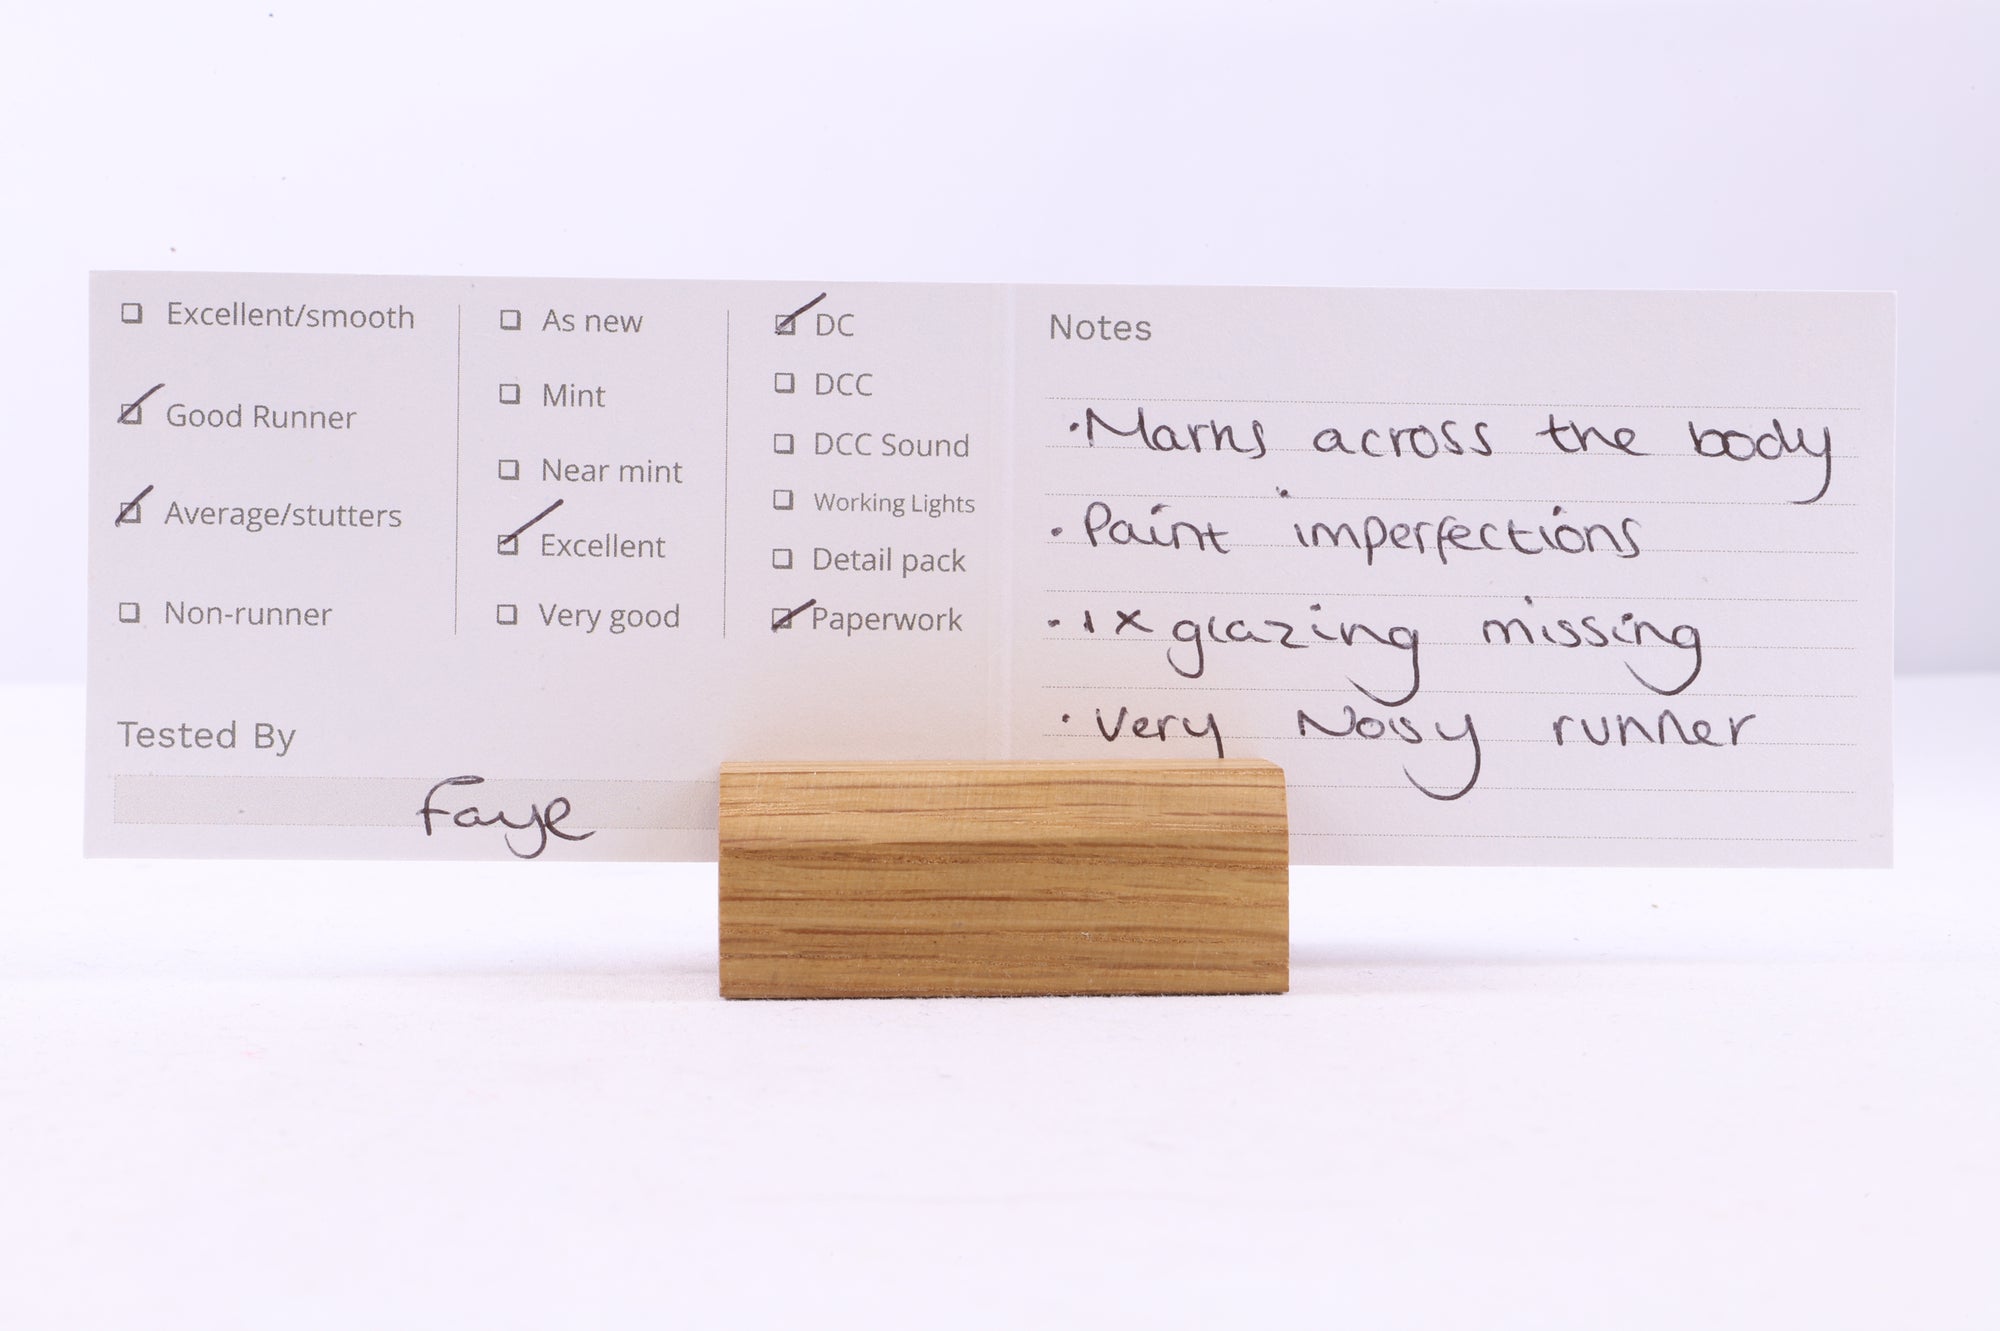 Excellent/smooth
Good Runner
Average/stutters
Non-runner
As new
Mint
Near mint
Excellent
Very good
DC
DCC
DCC Sound
Working Lights
Detail pack
Paperwork
Tested By
Faye
Notes
· Marks across the body
· Paint imperfections
· 1x glazing missing
· Very Noisy runner